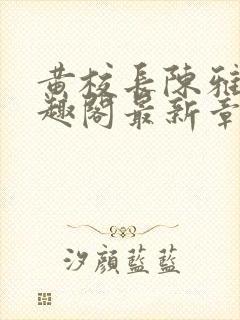 黄校長陳雅
趣閣最新章
汐顔藍藍